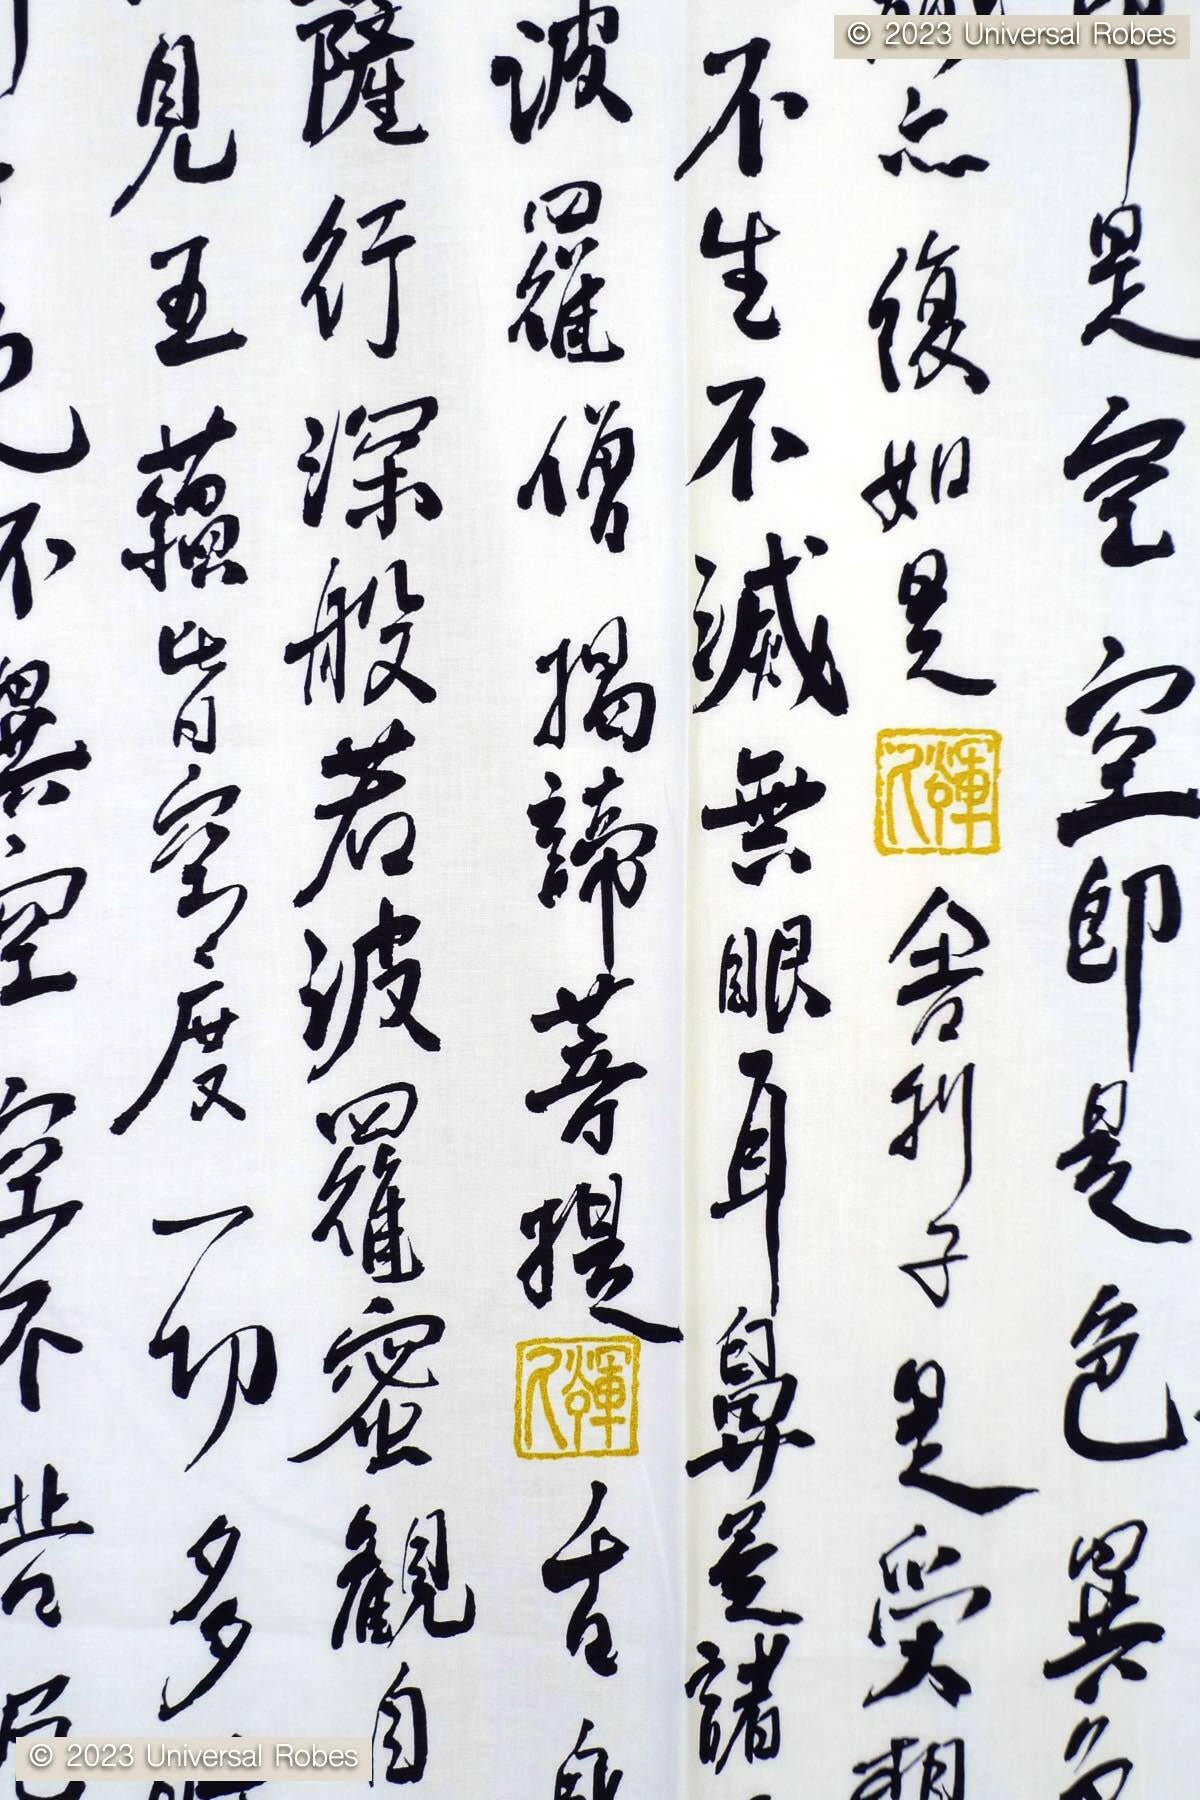 © 2023 Universal Robes
即是空空即是色異色
亦復如是舍利子是受想
不生不滅無眼耳鼻是諸
波羅僧揭諦菩提舌
薩行深般若波羅蜜観自
見五蘊皆空度一切多
色不異空空不苦厄
© 2023 Universal Robes